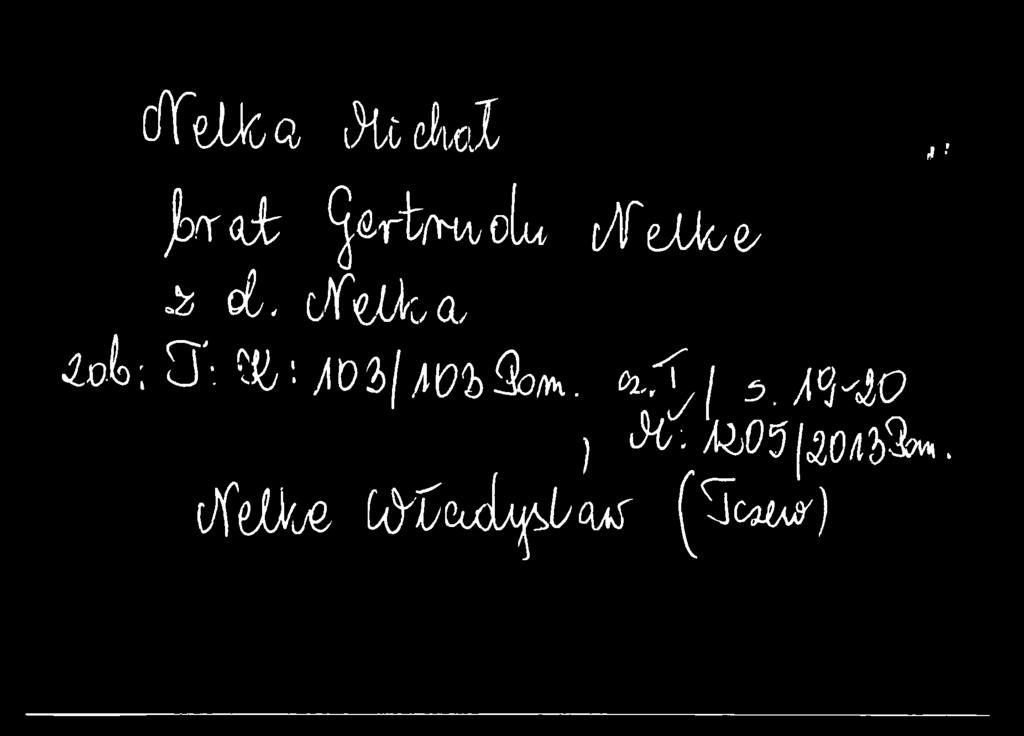 Nelka Michał
brat Gertrudy Nelke
z d. Nelka
zob: T: K: 103/103 Pom. cz. I / s. 19-20
, M: 1205/2013 Pom.
Nelke Władysław (Tczew)